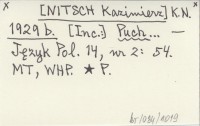 x [NITSCH Kazimierz] K.N. x
1929 b. [Inc.:] Puch... —
Język Pol. 14, nr 2: 54.
MT, WHP. ★ P.
br/094/2019